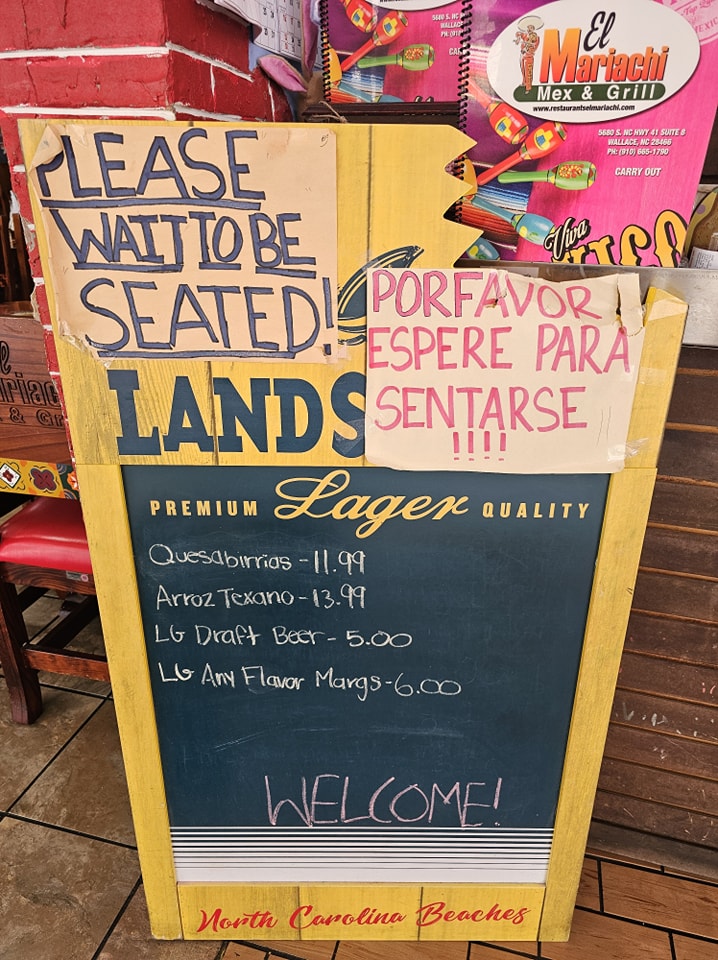 PLEASE
WAIT TO BE
SEATED!
PORFAVOR
ESPERE PARA
SENTARSE
!!!!
LANDS
PREMIUM Lager QUALITY
Quesabirrias - 11.99
Arroz Texano - 13.99
LG Draft Beer - 5.00
LG Any Flavor Margs - 6.00
WELCOME!
North Carolina Beaches
El
Mariachi
Mex & Grill
www.restaurantselmariachi.com
5680 S. NC HWY 41 SUITE 8
WALLACE, NC 28466
PH: (910) 665-1790
CARRY OUT
Viva